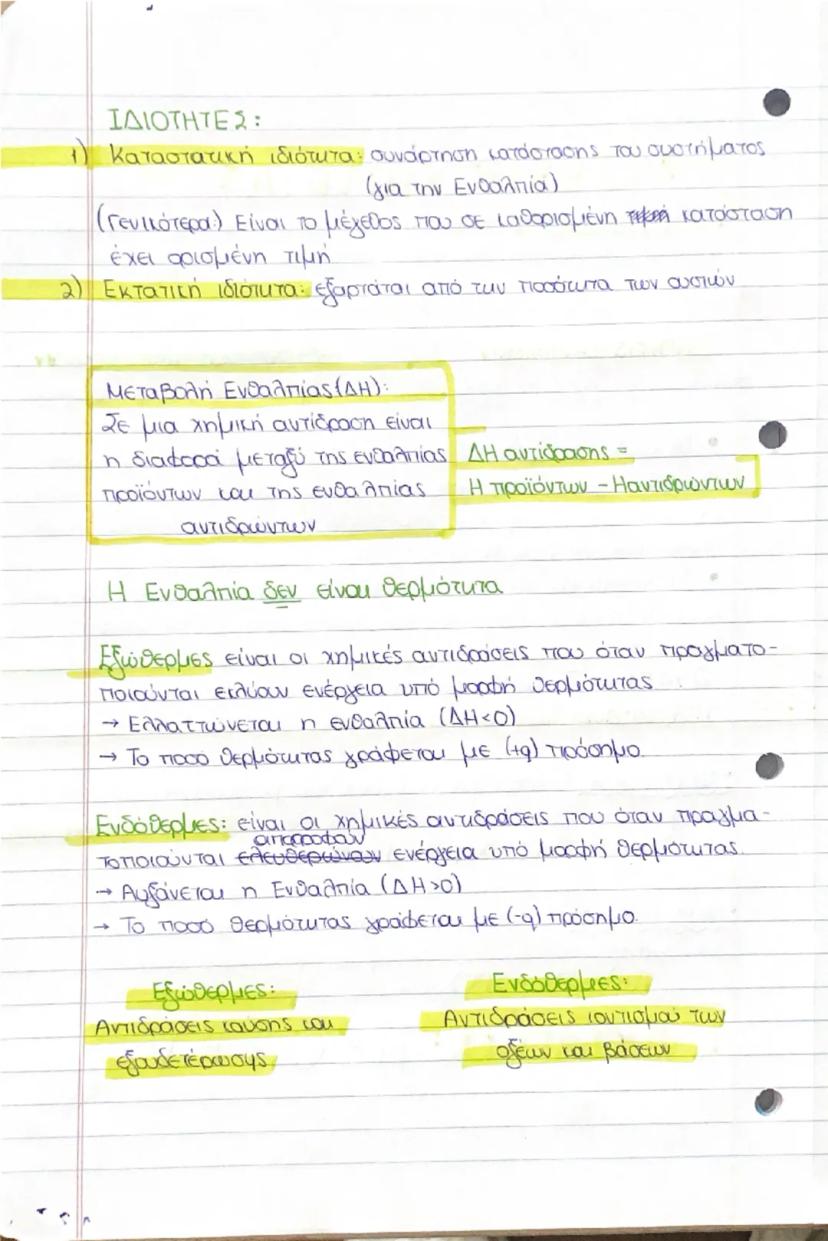 ΙΔΙΟΤΗΤΕΣ:
1) Καταστατική ιδιότητα: συνάρτηση κατάστασης του συστήματος
(για την Ενθαλπία)
(Γενικότερα:) Είναι το μέγεθος που σε καθορισμένη τιμή κατάσταση
έχει ορισμένη τιμή
2) Εκτατική ιδιότητα: εξαρτάται από την ποσότητα των ουσιών
Μεταβολή Ενθαλπίας (ΔΗ):
Σε μια χημική αντίδραση είναι
η διαφορά μεταξύ της ενθαλπίας
προϊόντων και της ενθαλπίας
αντιδρώντων
ΔΗ αντίδρασης =
Η προϊόντων - Η αντιδρώντων
Η Ενθαλπία δεν είναι θερμότητα
Εξώθερμες είναι οι χημικές αντιδράσεις που όταν πραγματο-
ποιούνται εκλύουν ενέργεια υπό μορφή θερμότητας
→ Ελλαττώνεται η ενθαλπία (ΔΗ<0)
→ Το ποσό θερμότητας γράφεται με (+q) πρόσημο.
Ενδόθερμες: είναι οι χημικές αντιδράσεις που όταν πραγμα-
απορροφούν
τοποιούνται ελευθερώνουν ενέργεια υπό μορφή θερμότητας.
→ Αυξάνεται η Ενθαλπία (ΔΗ>0)
→ Το ποσό θερμότητας γράφεται με (-q) πρόσημο.
Εξώθερμες:
Αντιδράσεις καύσης και
εξουδετέρωσης
Ενδόθερμες:
Αντιδράσεις ιοντισμού των
οξέων και βάσεων